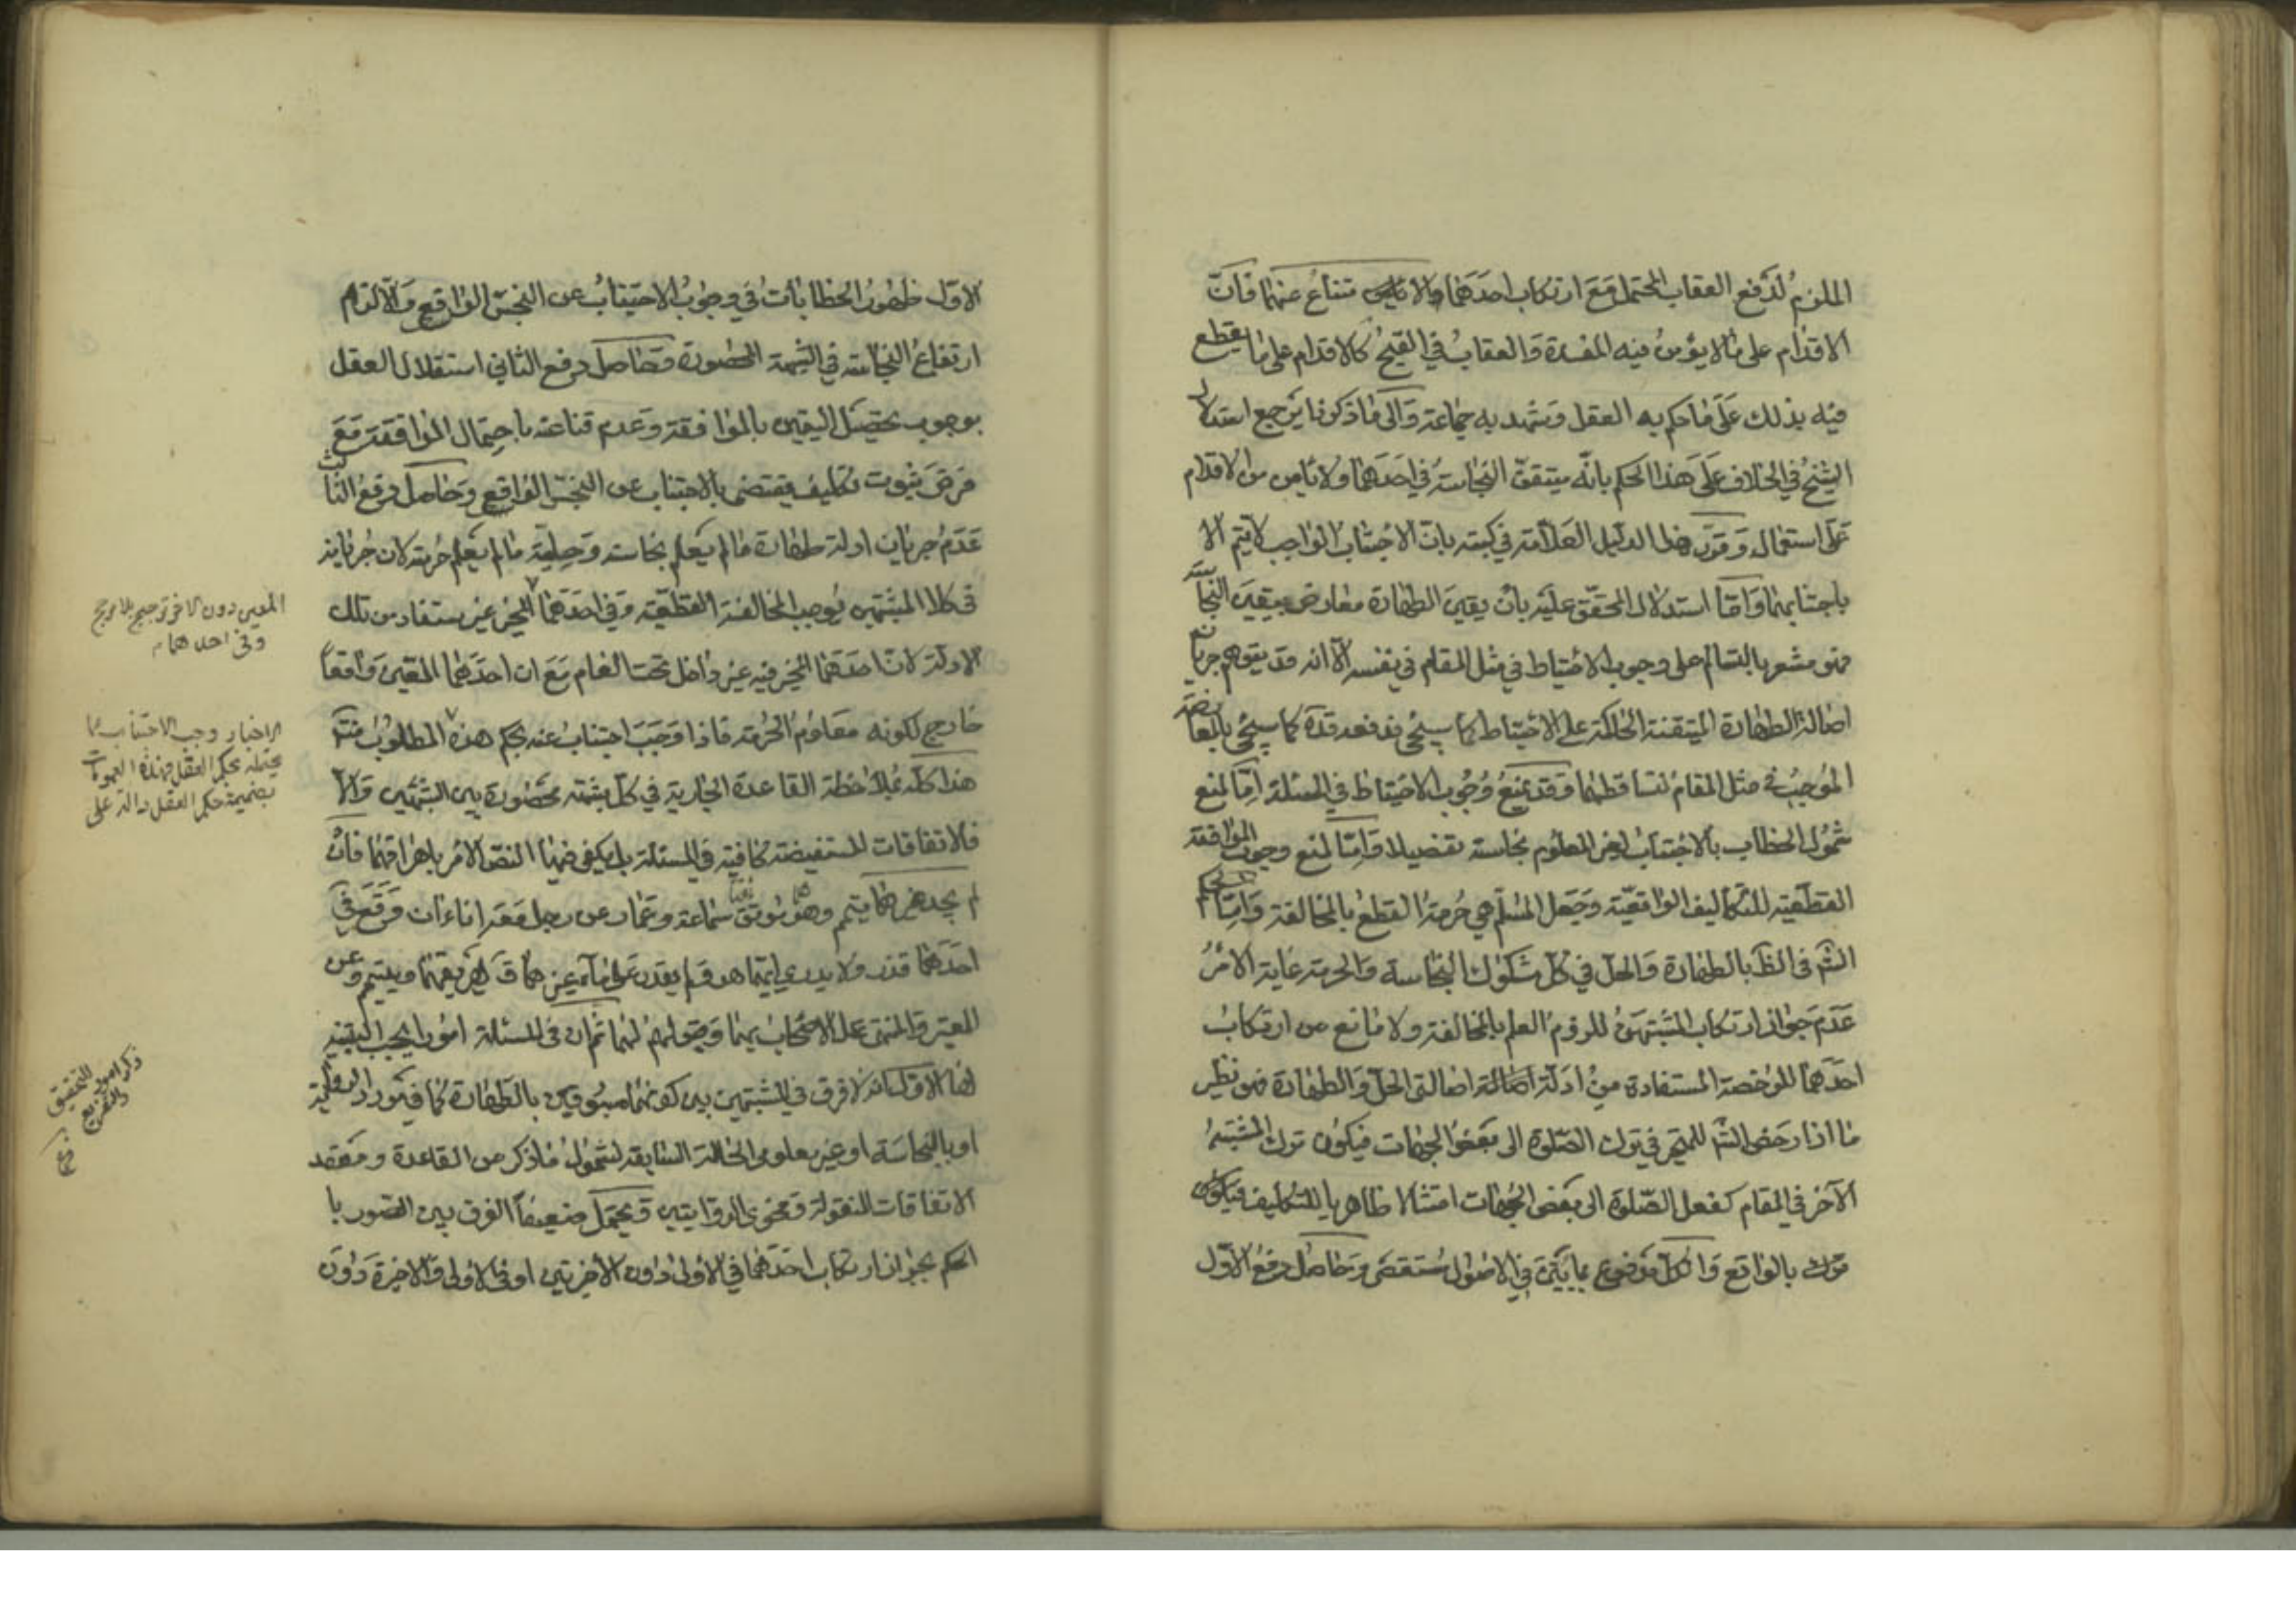 الملزم لدفع العقاب المحتمل مع ارتكاب احدهما والا تناع عنهما فان
الاقدام على ما لا يؤمن فيه المفسدة والعقاب في القبح كالاقدام على ما يقطع
فيه بذلك على ما حكم به العقل وشهد به جماعة والى ما ذكرنا يرجع استدلال
الشيخ في الخلاف على هذا الحكم بانه متيقن النجاسة في احدهما ولا يأمن من الاقدام
على استعماله وقرر هذا الدليل العلامة في كتبه بان الاجتناب الواجب لا يتم الا
باجتنابهما واما استدلال المحقق عليه بان يقين الطهارة معارض بيقين النجاسة
فهو مشعر بالتسالم على وجوب الاحتياط في مثل المقام في نفسه الا انه قد يتوهم جريان
اصالة الطهارة المتيقنة الحاكمة على الاحتياط كما سيجئ فدفعه قده كما سيجئ بالمعارضة
الموجبة في مثل المقام لتساقطهما وقد يمنع وجوب الاحتياط في المسئلة اما لمنع
شمول الخطاب بالاجتناب لغير المعلوم نجاسته تفصيلا واما لمنع وجوب الموافقة
القطعية للتكاليف الواقعية وجعل المسلم هي حرمة القطع بالمخالفة واما لحكم
الشم في الظ بالطهارة والحل في كل مشكوك النجاسة والحرمة غاية الامر
عدم جواز ارتكاب المشتبهين للزوم العلم بالمخالفة ولا مانع من ارتكاب
احدهما للرخصة المستفادة من ادلة اصالتى الحل والطهارة فهو نظير
ما اذا رخص الشم للمتحير في ترك الصلوة الى بعض الجهات فيكون ترك المشتبه
الآخر في المقام كفعل الصلوة الى بعض الجهات امتثالا ظاهريا للتكليف فيكون
بالواقع والكل مدفوع بما بيّن في الاصول مستقصى وحاصل دفع الاول
الاول ظهور الخطابات في وجوب الاجتناب عن النجس الواقع والا لزم
ارتفاع النجاسة في الشبهة المحصورة وحاصل دفع الثاني استقلال العقل
بوجوب تحصيل اليقين بالموافقة وعدم قناعته باحتمال الموافقة مع
فرض ثبوت تكليف يقتضى بالاجتناب عن النجس الواقع وحاصل دفع الثالث
عدم جريان ادلة طهارة ما لم يعلم نجاسته وحلية ما لم يعلم حرمته لان جريانه
في كلا المشتبهين يوجب المخالفة القطعية وفي احدهما المخير غير مستفاد من تلك
الادلة لان احدهما المخير فيه غير داخل تحت العام مع ان احدهما المعين واقعا
خارج لكونه معلوم الحرمة فاذا وجب اجتناب عنه بحكم هذه المطلوب
هذا كله بملاحظة القاعدة الجارية في كل شبهة محصورة بين الشيئين والا
فالاتفاقات المستفيضة كافية في المسئلة بل يكفى فيها النص الامر باهراقهما فان
لم يجد غيرهما يتيم وهو موثق سماعة وعمار عن رجل معه اناءان وقع في
احدهما قذر ولا يدرى ايهما هو ولم يقدر على ماء غيرهما ق يهريقهما ويتيمم وعن
المعتبر والمنتهى عمل الاصحاب بهما وقبولهم لهما ثم ان في المسئلة امورا يجب التنبيه
لها الاول انه لا فرق في المشتبهين بين كونهما مسبوقين بالطهارة كما في مورد الرواية
او بالنجاسة او غير معلومى الحالة السابقة لشمول ما ذكر من القاعدة ومعقد
الاتفاقات المنقولة وفحوى الروايتين ويحتمل ضعيفا الفرق بين الصور با
لحكم بجواز ارتكاب احدهما في الاولى دون الاخيرتين او في الاولى والاخيرة دون
المعين دون الآخر ترجيح بلا مرجح
وفى احدهما
الاخبار وجب الاجتناب عما
يحتمله بحكم العقل فهذه العمومات
بضميمة حكم العقل دالة على
ذكر امور